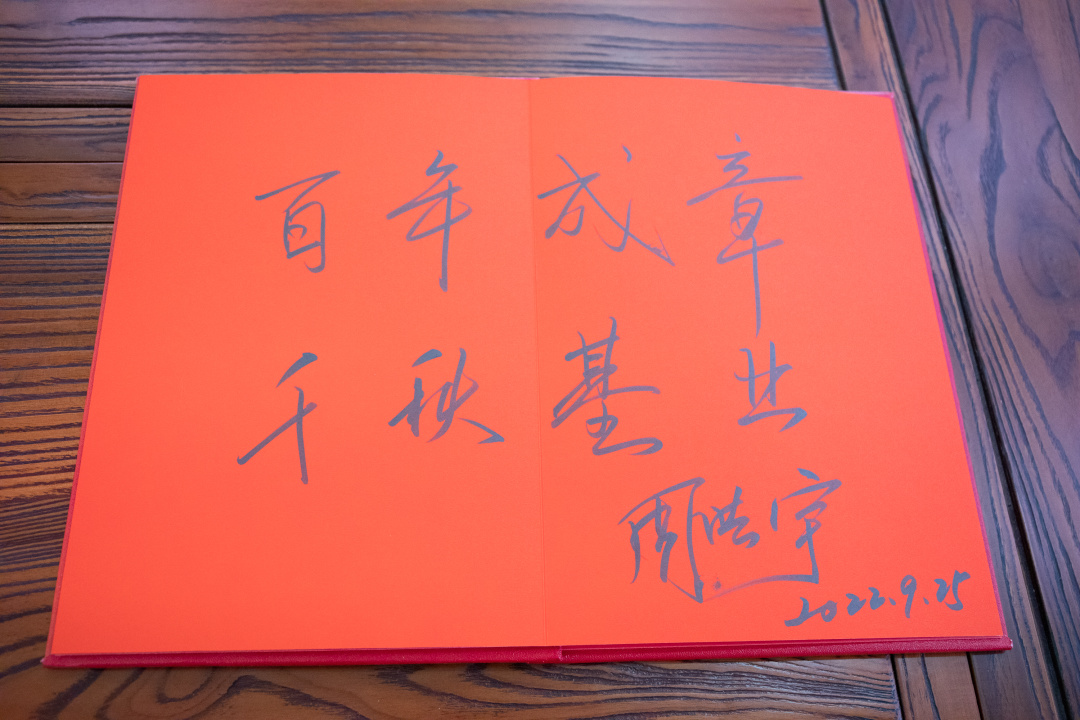 百年成章
千秋基业
周洪宇
2022.9.25